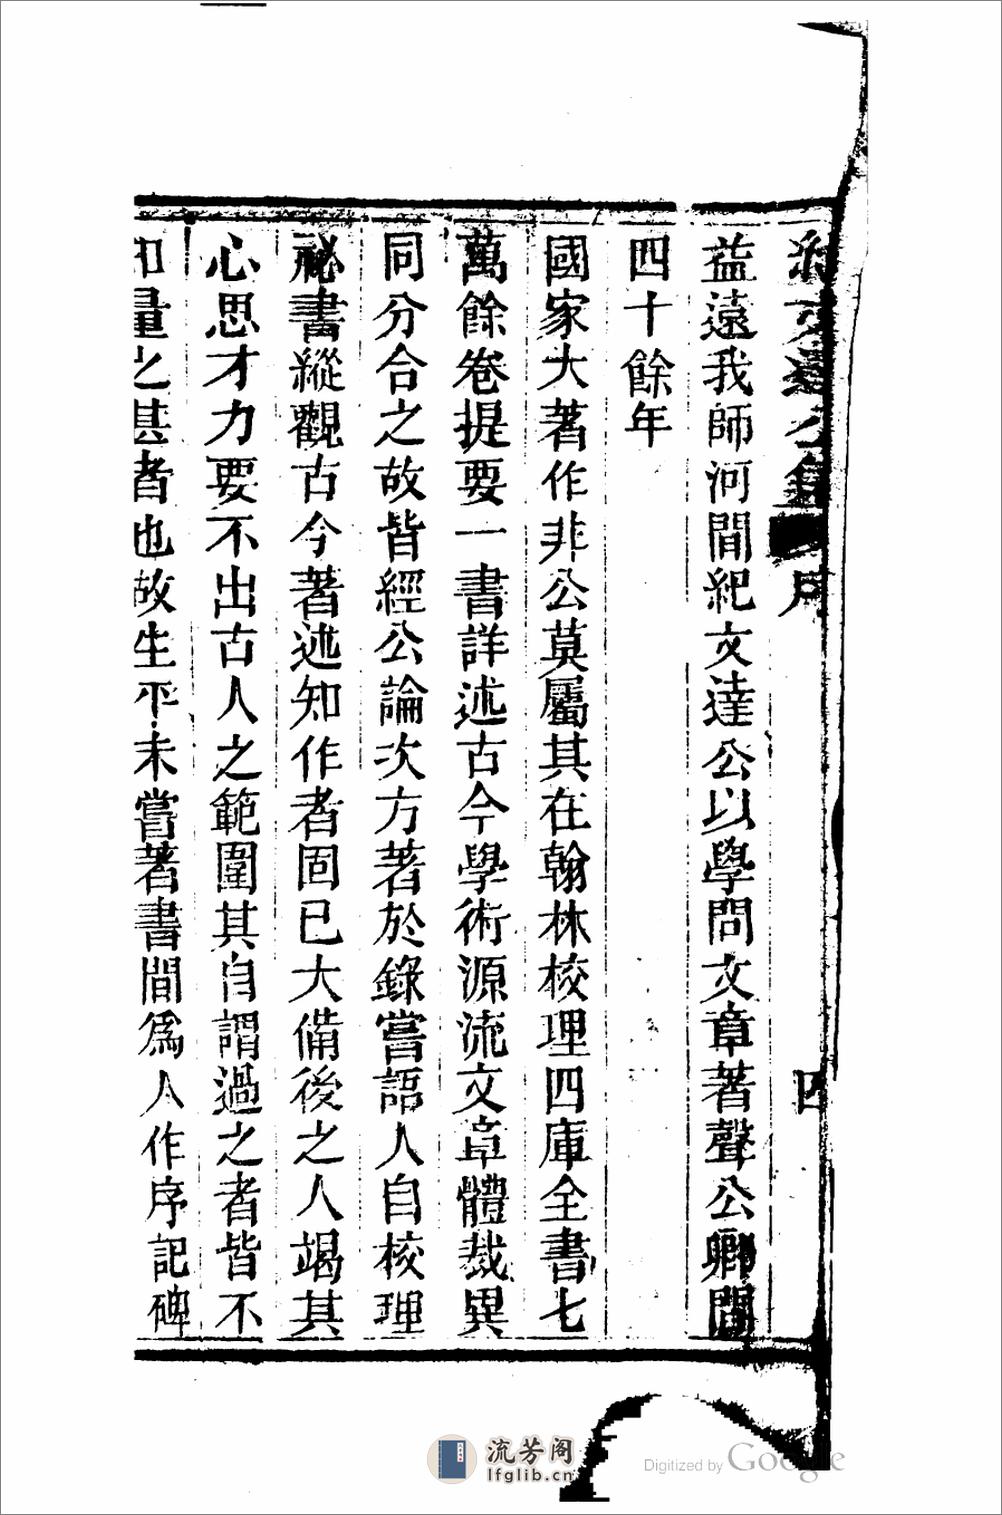 紀文達公集
序
四
益遠我師河間紀文達公以學問文章著聲公卿間
四十餘年
國家大著作非公莫屬其在翰林校理四庫全書七
萬餘卷提要一書詳述古今學術源流文章體裁異
同分合之故皆經公論次方著於錄嘗語人自校理
祕書縱觀古今著述知作者固已大備後之人竭其
心思才力要不出古人之範圍其自謂過之者皆不
知量之甚者也故生平未嘗著書間為人作序記碑
流芳阁
lfglib.cn
Digitized by Google